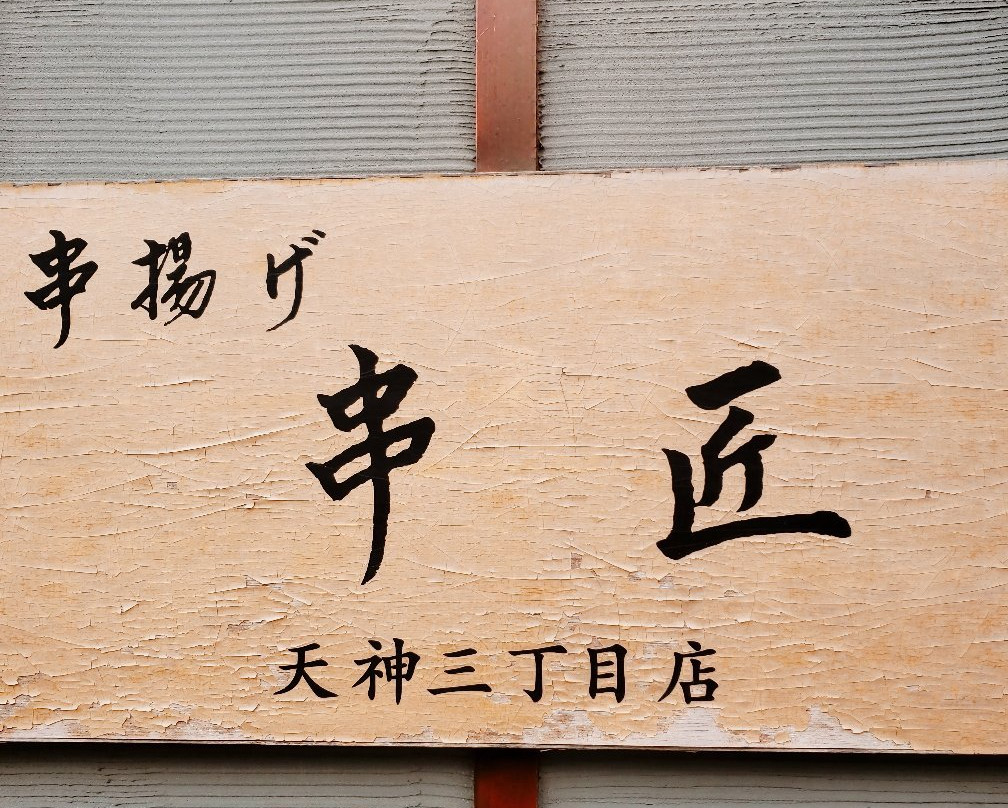 串揚げ
串匠
天神三丁目店